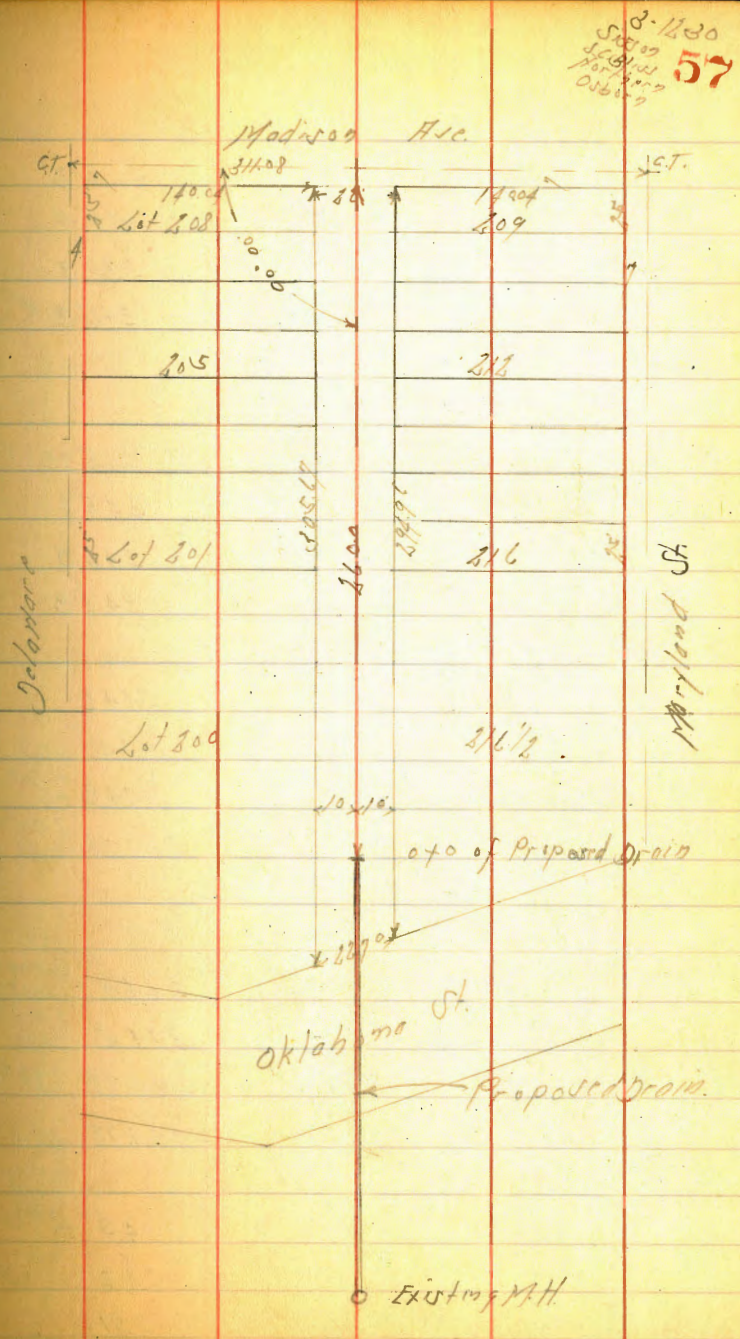 3-12-30
57
Sisson
S.C. Bliss
Osborn
Madison Ave.
C.T.
311.08
C.T.
140.04
140.04
25
25
Lot 208
209
205
212
2600
25
Lot 201
216
25
Delaware
Maryland St.
Lot 200
216 1/2
10
10
0+0 of Proposed Drain
Oklahoma St.
Proposed Drain.
Existing M.H.